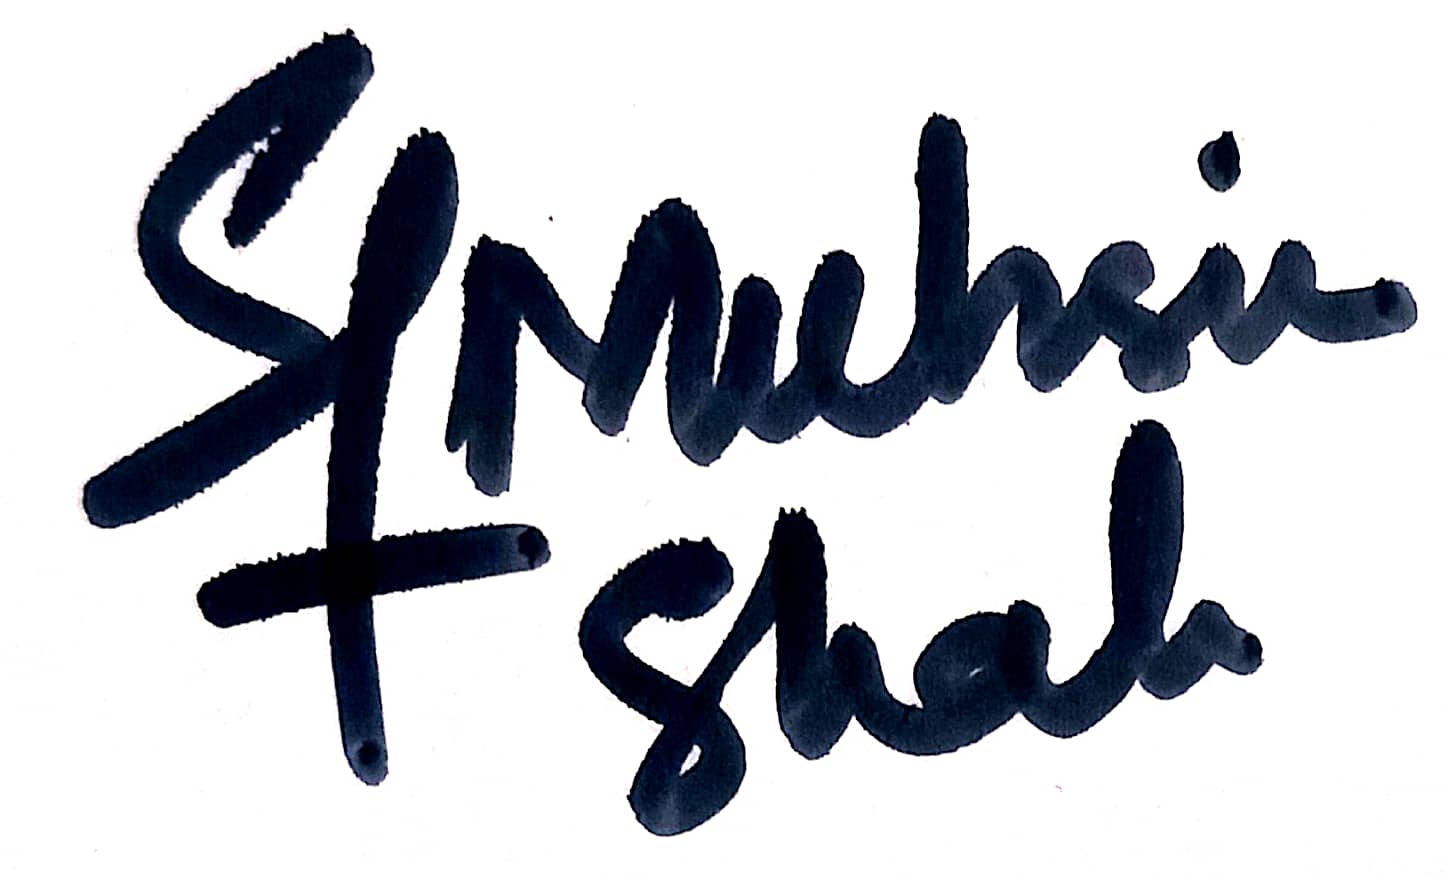 Muhsin
Shah